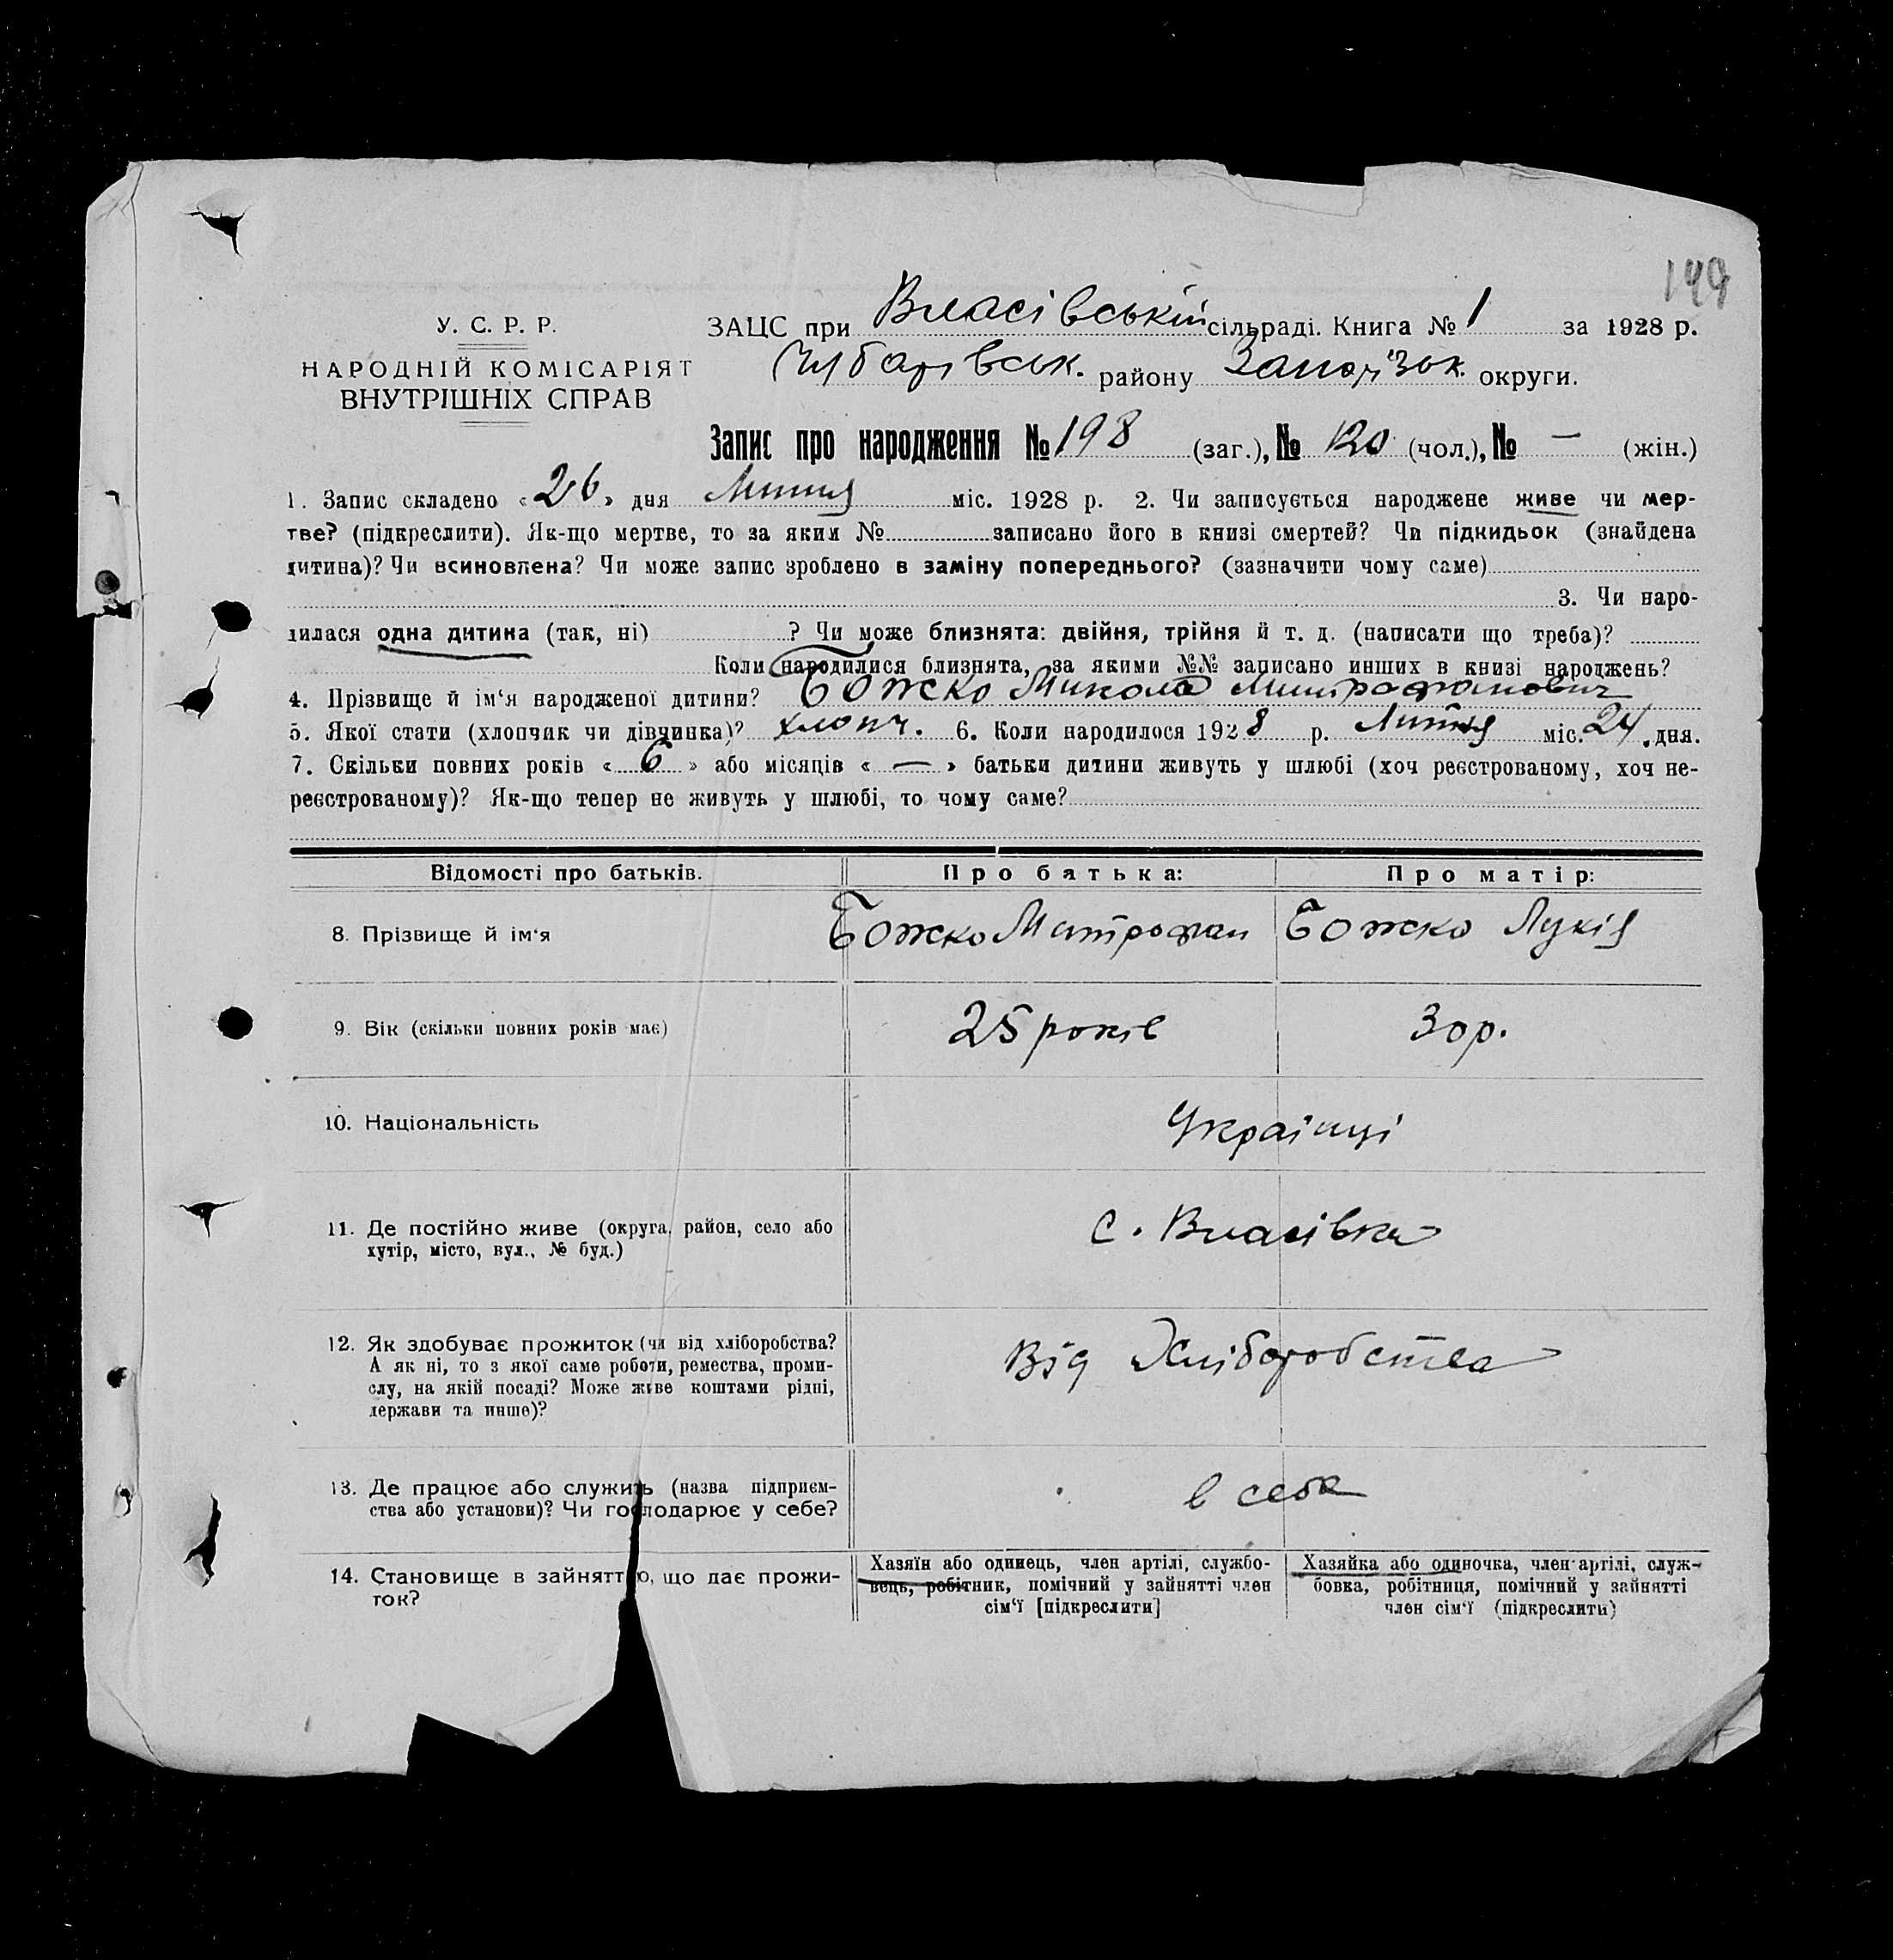 199
У. С. Р. Р.
НАРОДНІЙ КОМІСАРІЯТ
ВНУТРІШНІХ СПРАВ
ЗАЦС при Власівській сільраді. Книга № 1 за 1928 р.
Чубарівськ. району Запоріз'к. округи.
Запис про народження № 198 (заг.), № 120 (чол.), № — (жін.)
1. Запис складено «26» дня Липня міс. 1928 р. 2. Чи записується народжене живе чи мер-
тве? (підкреслити). Як-що мертве, то за яким № записано його в книзі смертей? Чи підкидьок (знайдена
дитина)? Чи всиновлена? Чи може запис зроблено в заміну попереднього? (зазначити чому саме)
3. Чи наро-
дилася одна дитина (так, ні) ? Чи може близнята: двійня, трійня й т. д. (написати що треба)?
Коли народилися близнята, за якими №№ записано инших в книзі народжень?
4. Прізвище й ім'я народженої дитини? Божко Микола Митрофанович
5. Якої стати (хлопчик чи дівчинка)? хлопч. 6. Коли народилося 1928 р. Липня міс. 24 дня.
7. Скільки повних років «6» або місяців «—» батьки дитини живуть у шлюбі (хоч реєстрованому, хоч не-
реєстрованому)? Як-що тепер не живуть у шлюбі, то чому саме?
Відомості про батьків. Про батька: Про матір:
8. Прізвище й ім'я Божко Митрофан Божко Лукія
9. Вік (скільки повних років має) 25 років 30 р.
10. Національність Українці
11. Де постійно живе (округа, район, село або
хутір, місто, вул., № буд.) с. Власівка
12. Як здобуває прожиток (чи від хліборобства?
А як ні, то з якої саме роботи, ремества, проми-
слу, на якій посаді? Може живе коштами рідні,
держави та инше)? Від Хліборобства
13. Де працює або служить (назва підприєм-
ства або установи)? Чи господарює у себе? в себе
14. Становище в зайняттю, що дає прожи-
ток?
Хазяїн або одинець, член артілі, службо-
вець, робітник, помічний у зайнятті член
сім'ї [підкреслити]
Хазяйка або одиночка, член артілі, служ-
бовка, робітниця, помічний у зайнятті
член сім'ї (підкреслити)